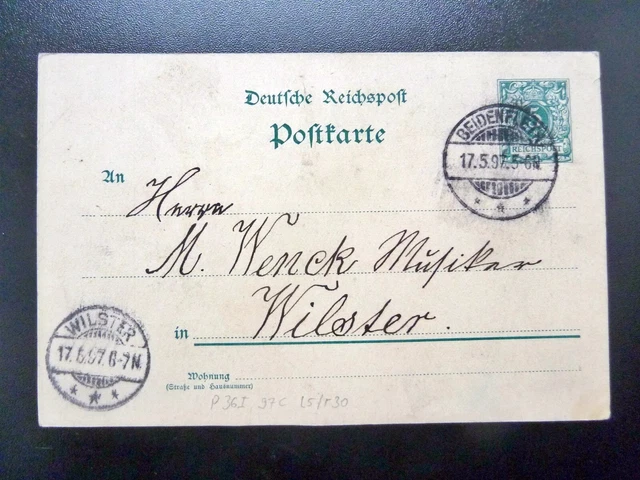 Deutsche Reichspost
Postkarte
5
REICHSPOST
BEIDENFLETH
17.5.97.5-6N.
An
Herrn
M. Wenck Musiker
in Wilster.
WILSTER
17.5.97.6-7N.
Wohnung
(Straße und Hausnummer)
P 36I 97C L5/r30